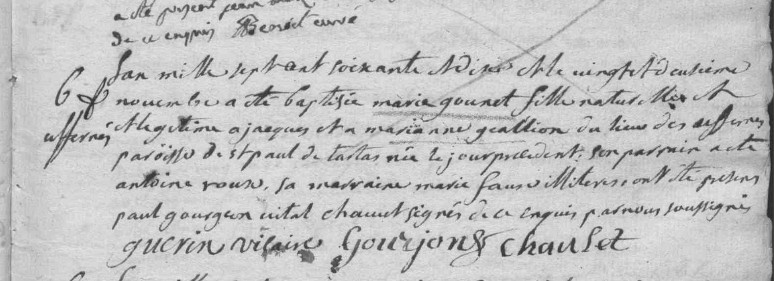 a été présent jean
de ce enquis Benoit curé
Lan mille sept cent soixante et dix et le vingt et deusieme
B f novembre a eté baptisée marie gounet fille naturelle et
uffernés et legitime a jacques et a marianne geallion du lieu des uffernés
paroisse de st paul de tartas née le jour precedent; son parrain a eté
antoine roux, sa marraine marie faux illiteres ont eté presens
paul gourgeon vital chaulet signés de ce enquis par nous soussignés
guerin vicaire Gourjon chaulet